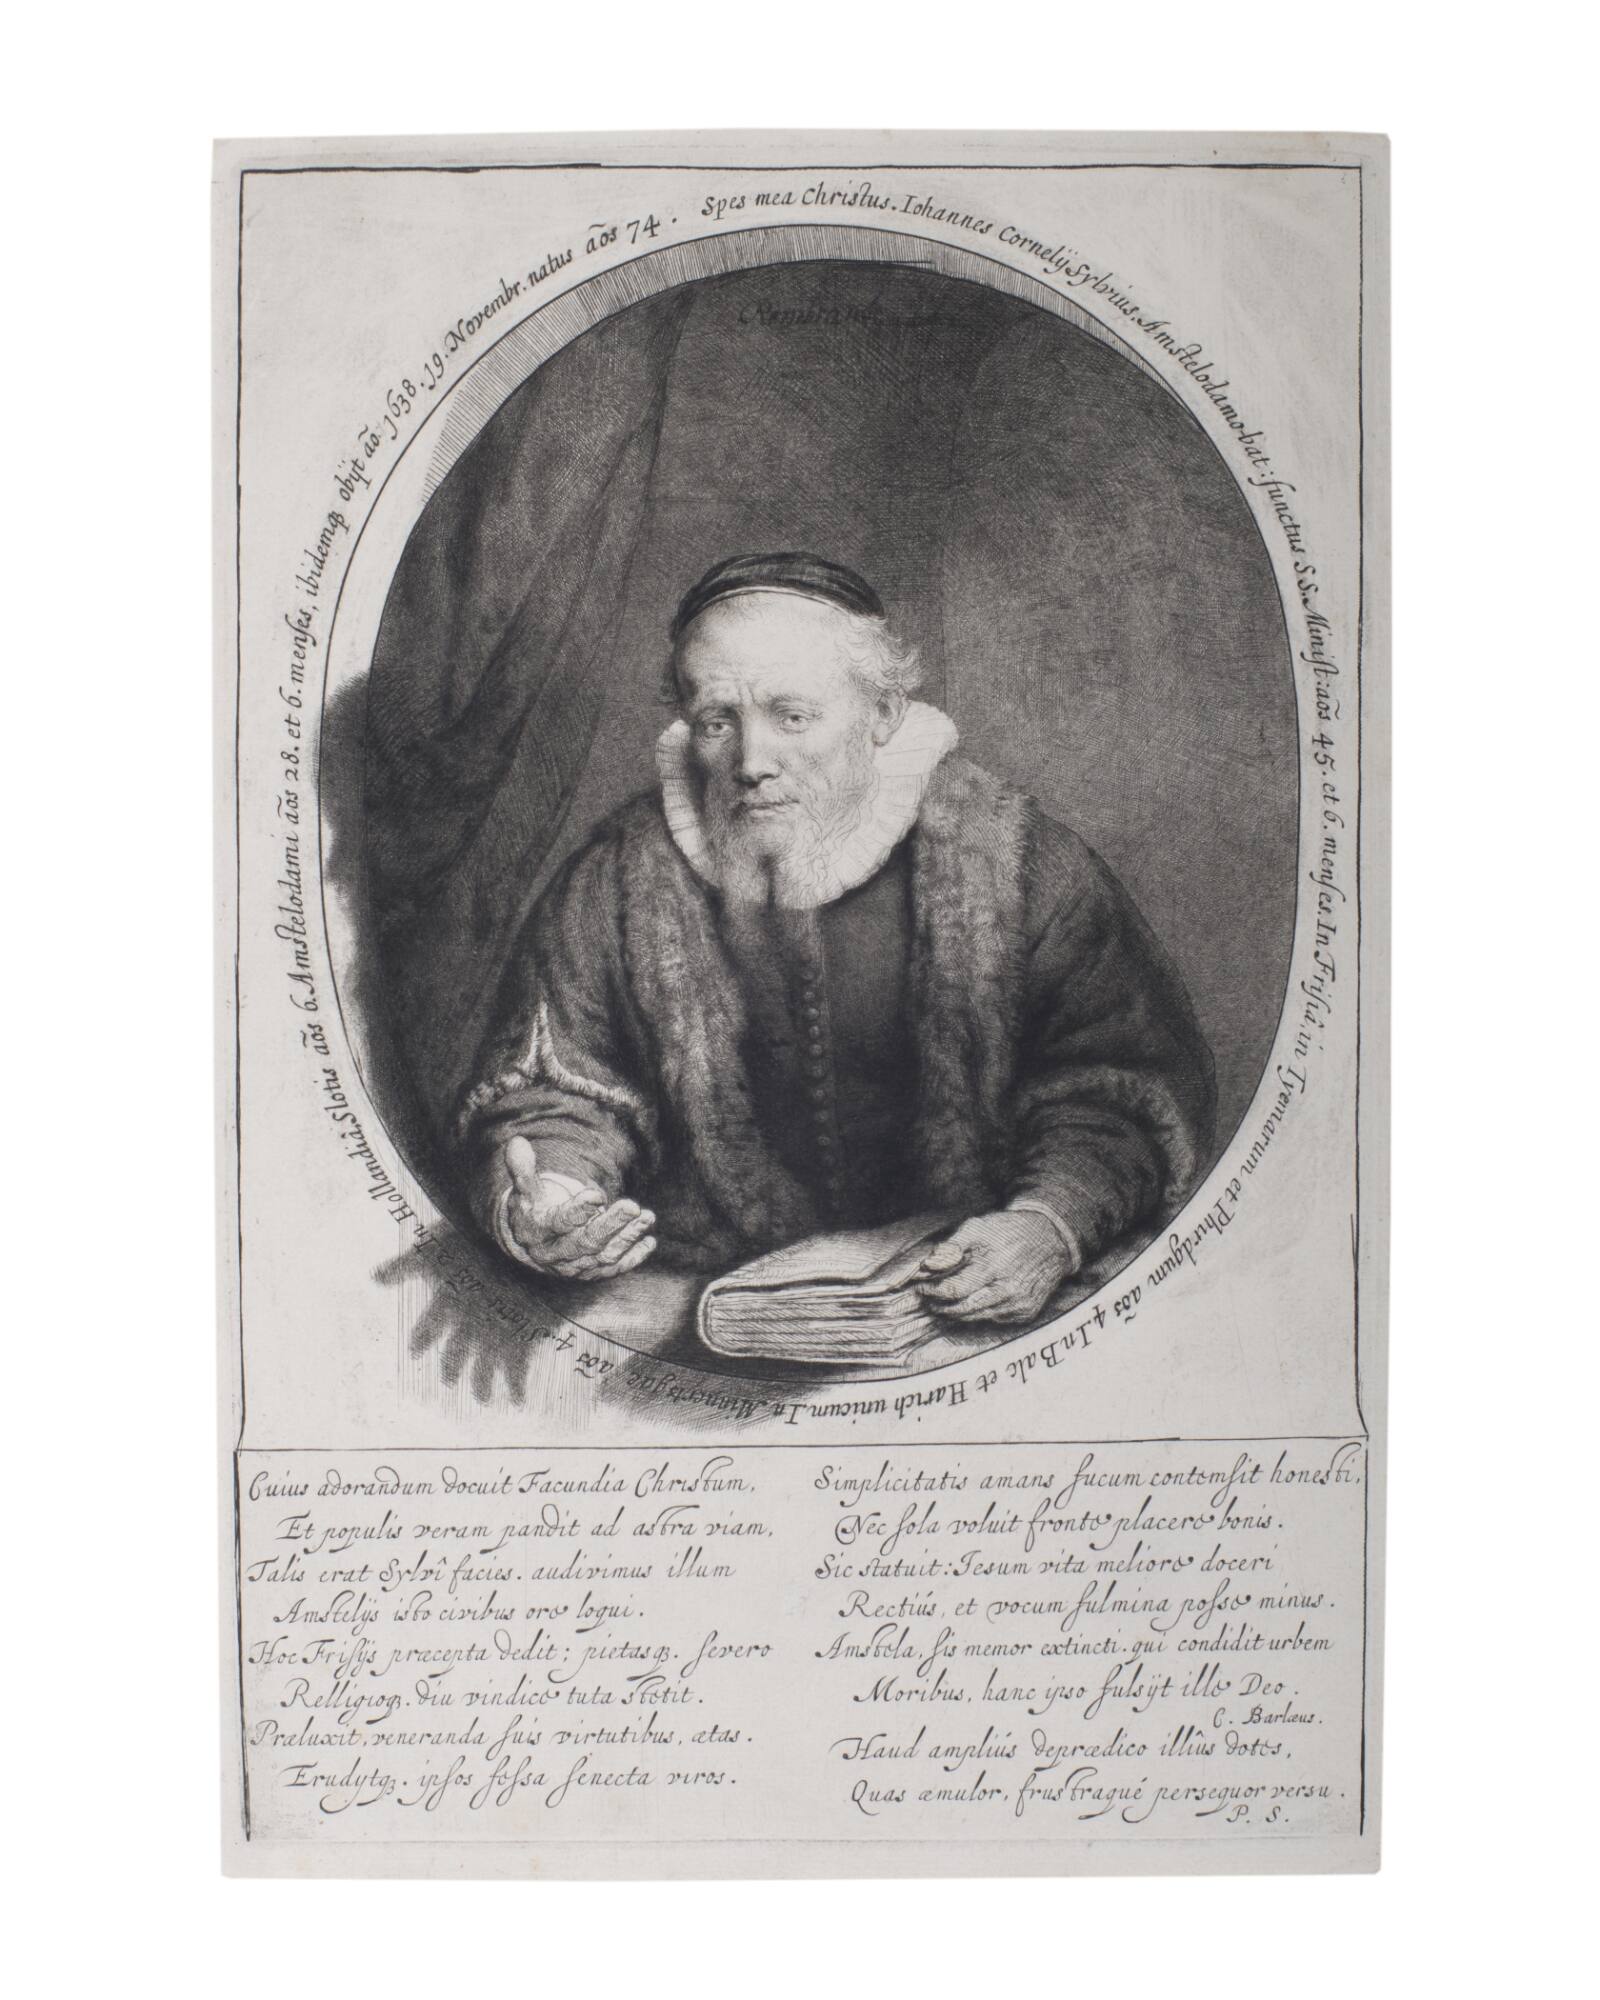 Spes mea Christus. Iohannes Cornelÿ Sylvius. Amstelodamo-bat: functus SS. Minist: aōs 45. et 6. menses. In Frisiâ, in Tyemarum et Phirdgum aōs 4. In Balc et Harich unicum. In Minnertsgae aōs 4. Slotis aōs 2. In Hollandiâ, Slotis aōs 6. Amstelodami aōs 28. et 6. menses, ibidemqȝ obijt aō. 1638. 19. Novembr. natus aōs 74.
Rembrandt
Cuius adorandum docuit Facundia Christum,
Et populis veram pandit ad astra viam,
Talis erat Sylvî facies. audivimus illum
Amstelijs isto civibus ore loqui.
Hoc Frisijs præcepta dedit; pietasqȝ. severo
Relligioqȝ. diu vindice tuta stetit.
Præluxit, veneranda suis virtutibus, ætas.
Erudytqȝ. ipsos fessa senecta viros.
Simplicitatis amans fucum contemsit honesti,
Nec sola voluit fronte placere bonis.
Sic statuit: Iesum vita meliore doceri
Rectiús, et vocum fulmina posse minus.
Amstela, sis memor extincti. qui condidit urbem
Moribus, hanc ipso fulsijt ille Deo.
C. Barlæus.
Haud ampliús deprædico illîus dotes,
Quas æmulor, frustraqué persequor versu.
P. S.